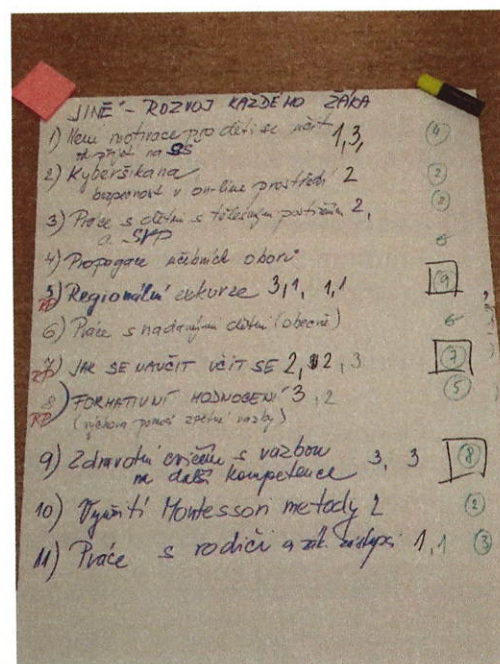 „JINÉ“ - ROZVOJ KAŽDÉHO ŽÁKA
1) Není motivace pro děti se učit 1,3, 4
přijet na SŠ
2) Kyberšikana 2
bezpečnost v on-line prostředí 2
3) Práce s dětmi s tělesným postižením 2, 2
a SVP
4) Propagace učebních oborů
5) Regionální exkurze 3,1, 1,1 9
6) Práce s nadanými dětmi (obecně)
7) JAK SE NAUČIT UČIT SE 2, 2, 3 7
8) FORMATIVNÍ HODNOCENÍ 3, 2 5
(výchova pomocí zpětné vazby)
9) Zdravotní cvičení s vazbou
na další kompetence 3, 3 8
10) Využití Montessori metody 2 2
11) Práce s rodiči a zák. zástupci 1,1 3